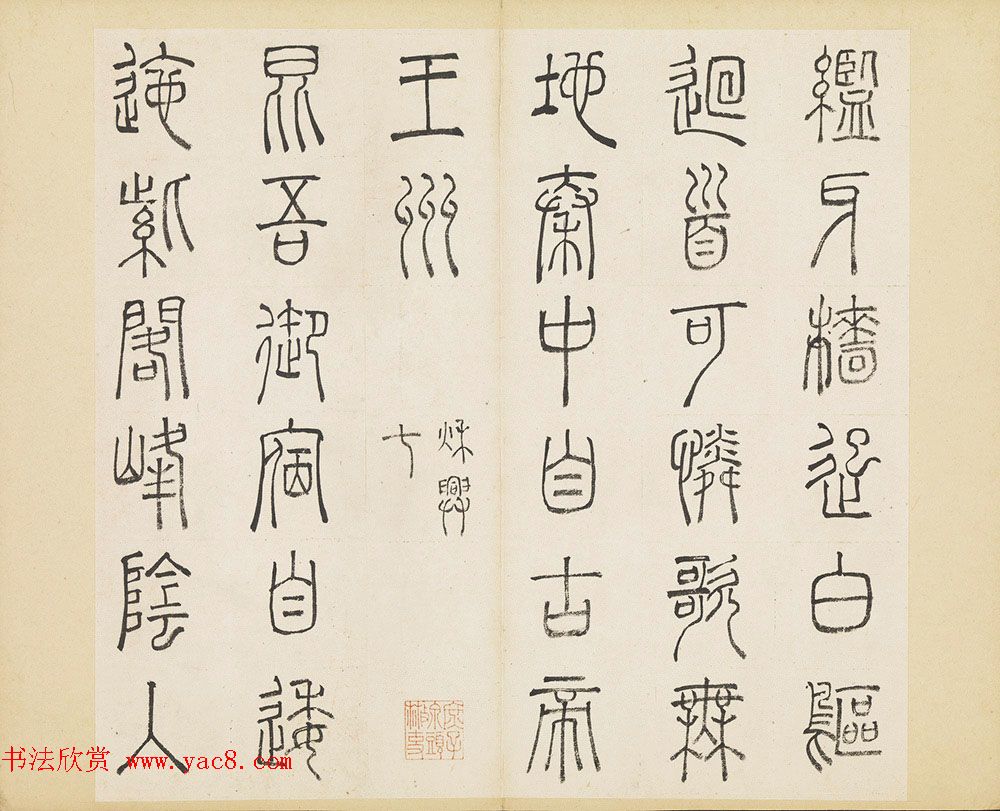 纜牙檣起白鷗
迴首可憐歌舞
地秦中自古帝
王州
秋興
七
昆吾御宿自逶
迤紫閣峰陰人
书法欣赏 www.yac8.com